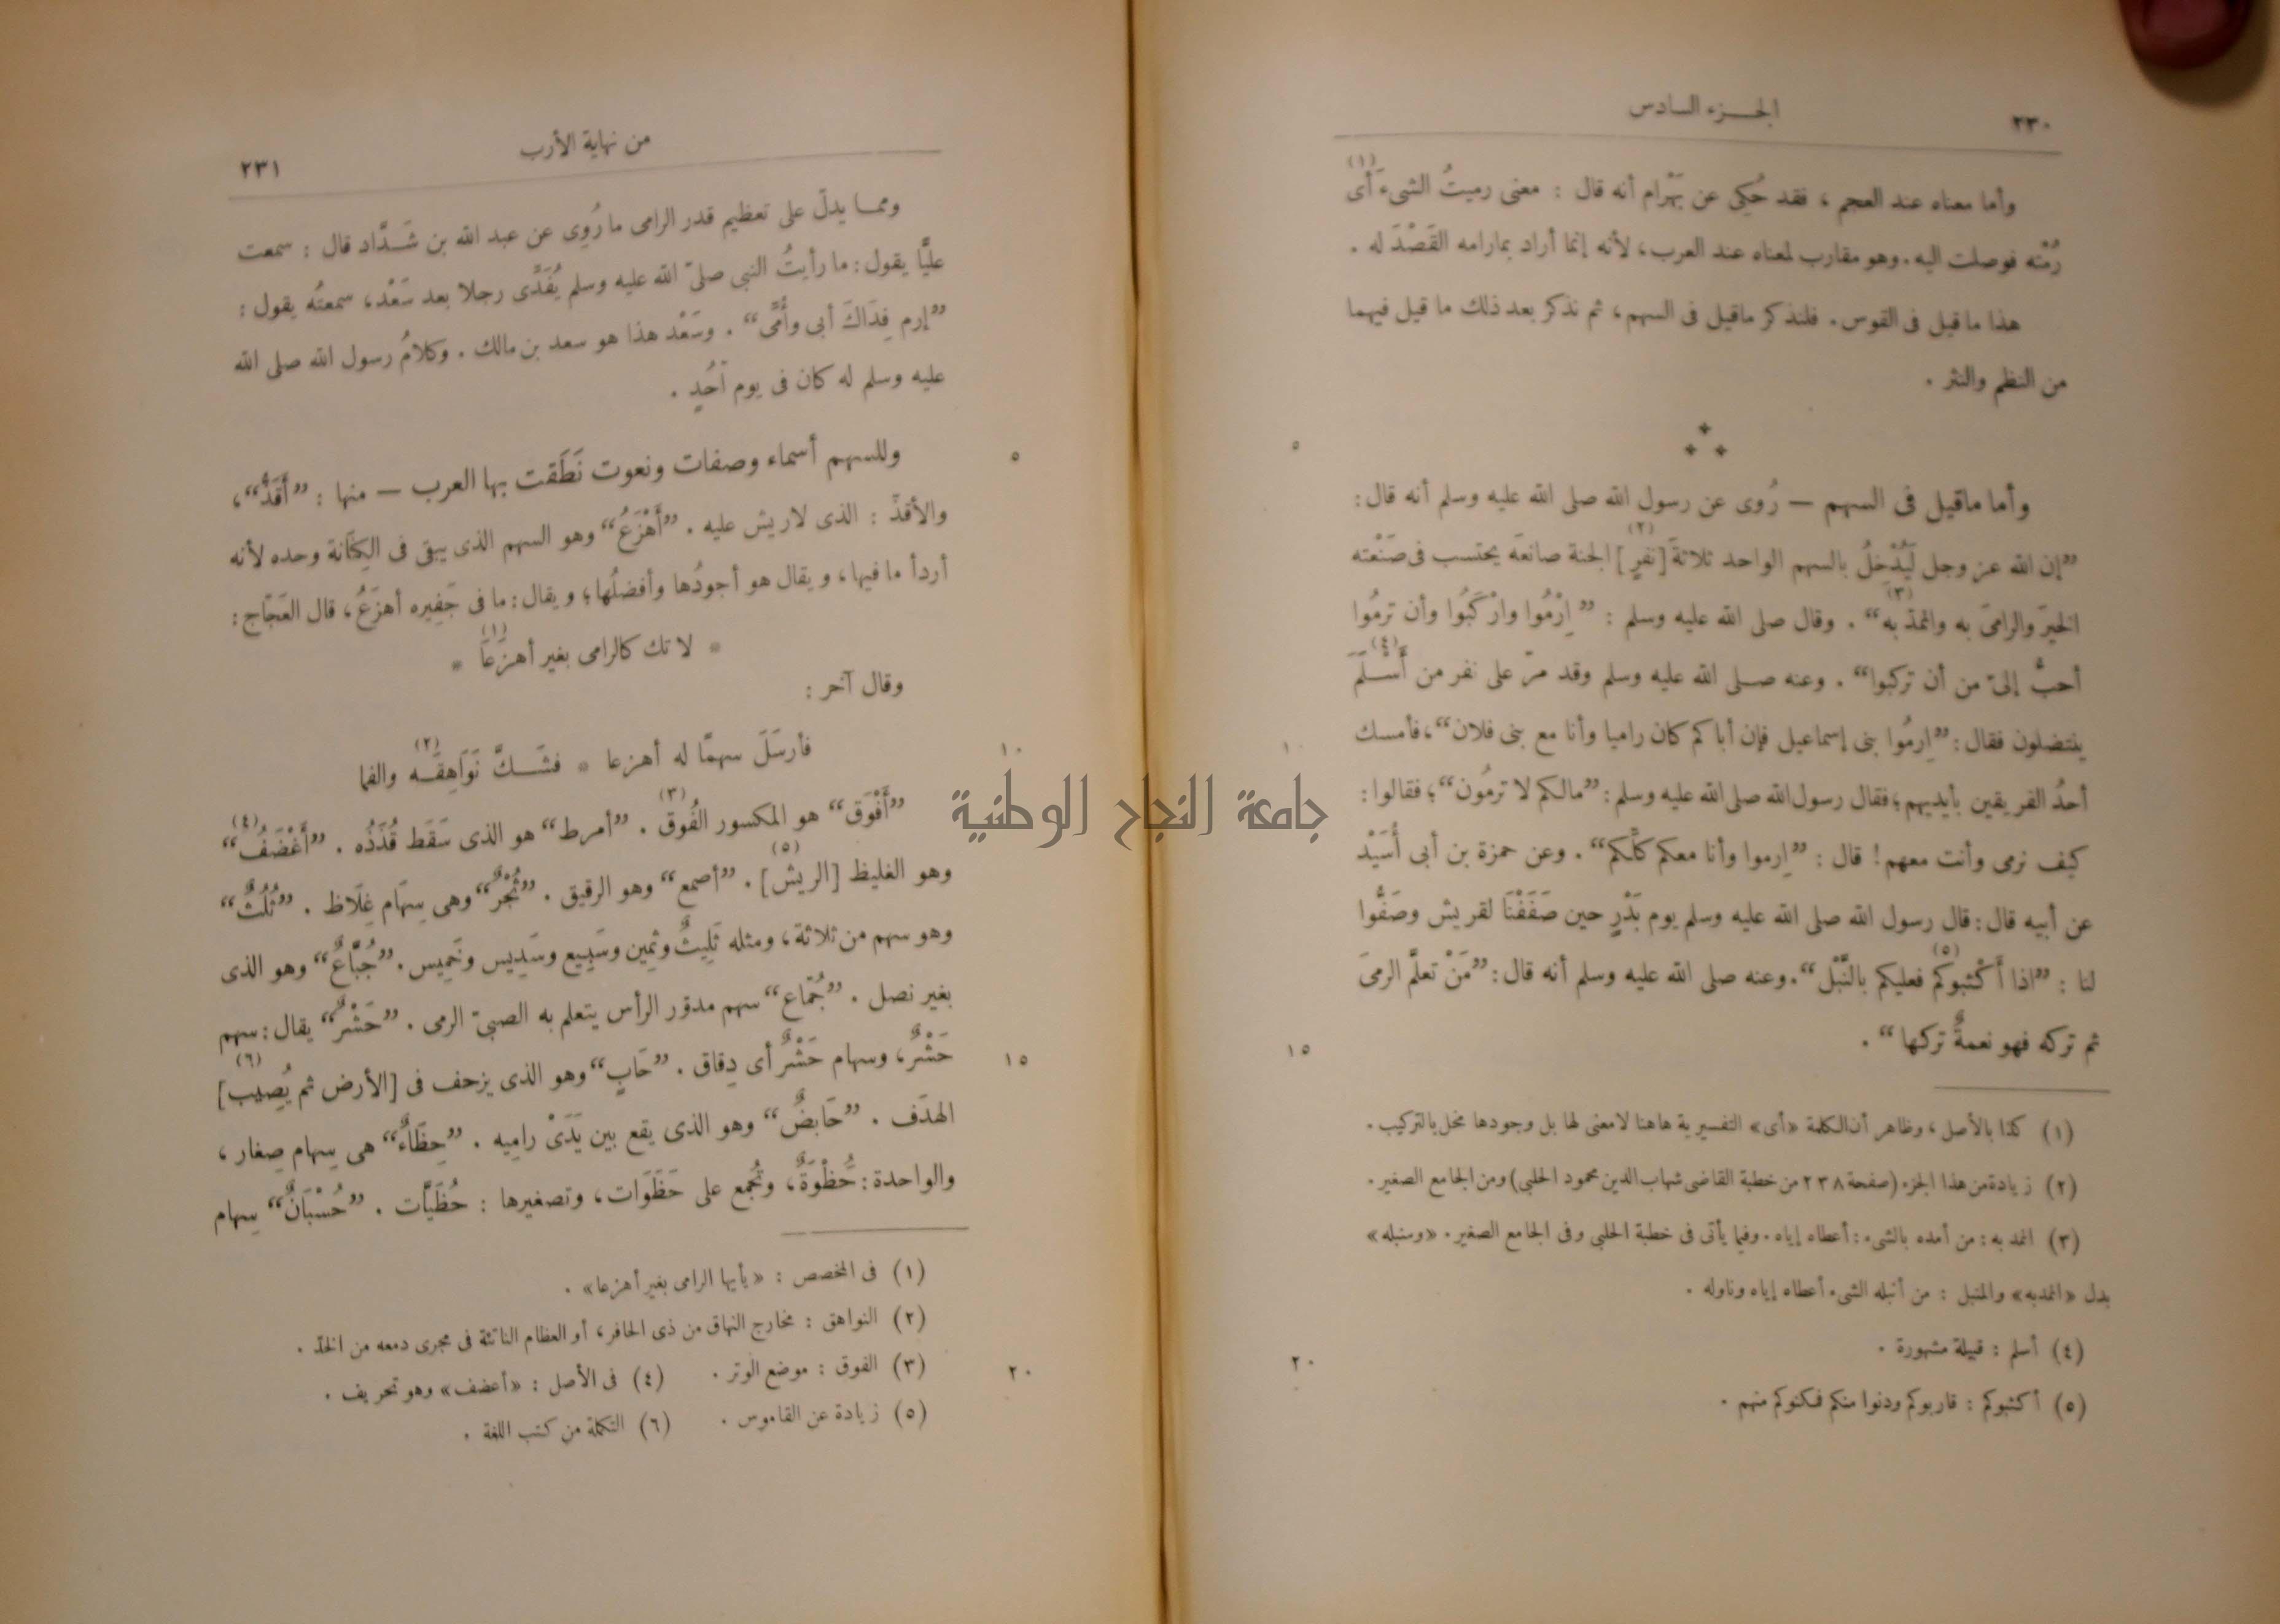 ٢٣٠
الجـــزء السادس
وأما معناه عند العجم ، فقد حُكِى عن بَهْرام أنه قال : معنى رميتُ الشىءَ أى (١)
رُمْته فوصلت اليه . وهو مقارب لمعناه عند العرب، لأنه إنما أراد بمارامه القَصْدَ له .
هذا ما قيل فى القوس . فلنذكر ماقيل فى السهم ، ثم نذكر بعد ذلك ما قيل فيهما
من النظم والنثر .
٥
وأما ماقيل فى السهم — رُوى عن رسول الله صلى الله عليه وسلم أنه قال :
”إن الله عز وجل لَيُدْخِلُ بالسهم الواحد ثلاثةَ [نفرٍ (٢)] الجنة صانعَه يحتسب فى صَنْعته
الخيرَ والرامىَ به والممدّ به (٣)“ . وقال صلى الله عليه وسلم : ”اِرْمُوا وارْكَبُوا وأن ترمُوا
أحبُّ إلىّ من أن تركبوا“ . وعنه صـلى الله عليه وسلم وقد مرّ على نفر من أَسْـلَمَ (٤)
ينتضلون فقال : ”اِرمُوا بنى إسماعيل فإن أباكم كان راميا وأنا مع بنى فلان“، فأمسك
١٠
أحدُ الفريقين بأيديهم ؛ فقال رسول الله صلى الله عليه وسلم : ”مالكم لا ترمُون“؛ فقالوا :
كيف نرمى وأنت معهم! قال : ”اِرموا وأنا معكم كلّكم“ . وعن حمزة بن أبى أُسَيْد
عن أبيه قال : قال رسول الله صلى الله عليه وسلم يوم بَدْرٍ حين صَفَفْنَا لقريش وصَفُّوا
لنا : ”اذا أَكْثبوكم (٥) فعليكم بالنَّبْل“ . وعنه صلى الله عليه وسلم أنه قال : ”مَنْ تعلَّم الرمىَ
ثم تركه فهو نعمةٌ تركها“ .
١٥
(١) كذا بالأصل ، وظاهر أن الكلمة «أى» التفسيرية هاهنا لا معنى لها بل وجودها مخل بالتركيب .
(٢) زيادة من هذا الجزء (صفحة ٢٣٨ من خطبة القاضى شهاب الدين محمود الحلبى) ومن الجامع الصغير .
(٣) الممد به : من أمده بالشىء : أعطاه إياه . وفيما يأتى فى خطبة الحلبى وفى الجامع الصغير . «ومنبله»
بدل «الممدبه» والمنبل : من أنبله الشىء أعطاه إياه وناوله .
(٤) أسلم : قبيلة مشهورة .
٢٠
(٥) أكثبوكم : قاربوكم ودنوا منكم فمكنوكم منهم .
من نهاية الأرب
٢٣١
ومـا يدلّ على تعظيم قدر الرامى ما رُوِى عن عبد الله بن شَـدَّاد قال : سمعت
عليًّا يقول : ما رأيتُ النبى صلىّ الله عليه وسلم يُفَدِّى رجلا بعد سَعْد، سمعتُه يقول :
”إرم فِدَاكَ أبى وأُمِّى“ . وسَعْد هذا هو سعد بن مالك . وكلامُ رسول الله صلى الله
عليه وسلم له كان فى يوم أُحُدٍ .
وللسهم أسماء وصفات ونعوت نَطَقت بها العرب — منها : ”أَقَذُّ“،
٥
والأقذّ : الذى لا ريش عليه . ”أَهْزَعُ“ وهو السهم الذى يبقى فى الكِنَانة وحده لأنه
أردأ ما فيها، ويقال هو أجودُها وأفضلُها؛ ويقال : ما فى جَفِيره أهزَعُ، قال العَجّاج :
* لا تك كالرامى بغير أهزَعَا (١) *
وقال آخر :
فأرسَلَ سهمًا له أهزعا * فشَــكَّ نَوَاهِقَـه (٢) والفما
١٠
”أَفْوَق“ هو المكسور الفُوق (٣) . ”أمرط“ هو الذى سَقَط قُذَذُه . ”أَغْضَفُ (٤)“
وهو الغليظ [الريش (٥)] . ”أصمع“ وهو الرقيق . ”ثُجْرٌ“ وهى سِهَام غِلَاظ . ”ثُلُثٌ“
وهو سهم من ثلاثة، ومثله ثَلِيثٌ وثَمِين وسَبِيع وسَدِيس وخَمِيس . ”جُبَّاعٌ“ وهو الذى
بغير نصل . ”جُمّاع“ سهم مدوّر الرأس يتعلم به الصبىّ الرمى . ”حَشْرٌ“ يقال : سهم
حَشْرٌ، وسهام حَشْرٌ أى دِقاق . ”حَابٍ“ وهو الذى يزحف فى [الأرض ثم يُصِيب (٦)]
١٥
الهدَف . ”حَابضٌ“ وهو الذى يقع بين يَدَىْ رامِيه . ”حِظَاءٌ“ هى سِهام صِغار ،
والواحدة : حُظْوَةٌ، وتُجمع على حَظَوَات، وتصغيرها : حُظَيَّات . ”حُسْبَانٌ“ سِهام
(١) فى المخصص : «يأيها الرامى بغير أهزعا» .
(٢) النواهق : مخارج النهاق من ذى الحافر، أو العظام الناتئة فى مجرى دمعه من الخدّ .
(٣) الفوق : موضع الوتر . (٤) فى الأصل : «أعضف» وهو تحريف .
٢٠
(٥) زيادة عن القاموس . (٦) التكملة من كتب اللغة .
جامعة النجاح الوطنية